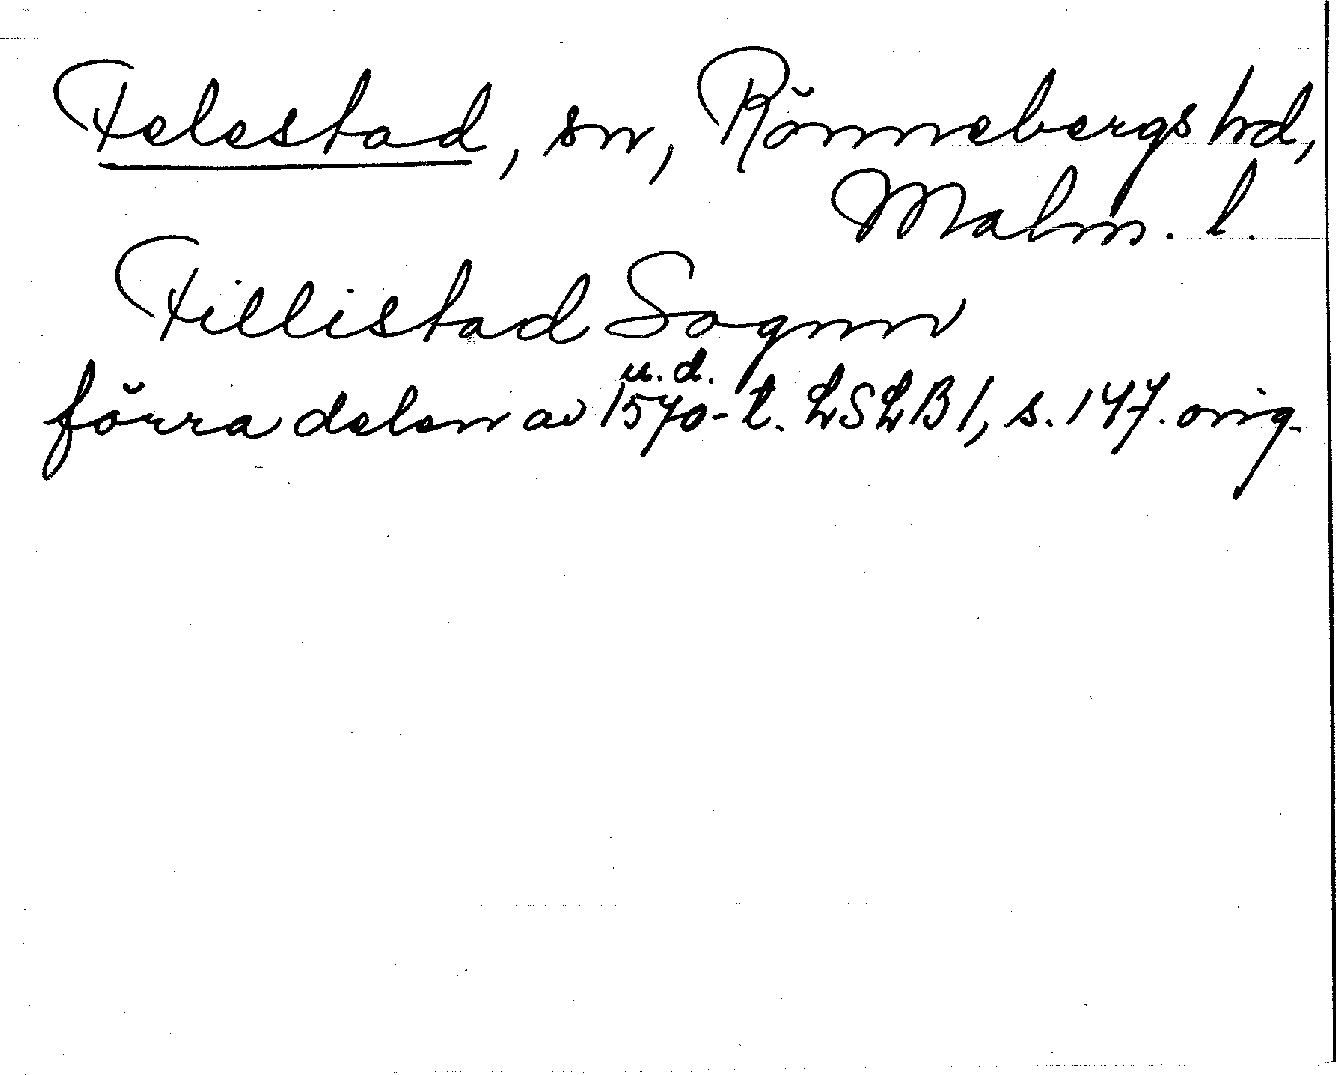 Felestad, sn, Rönnebergs hd,
Malm. l.
Fillistad Sognn
u. d.
förra delen av 1570-t. LSLB 1, s. 147. orig.